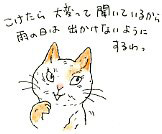 こけたら 大変って 聞いているから
雨の日は 出かけないように
するわっ